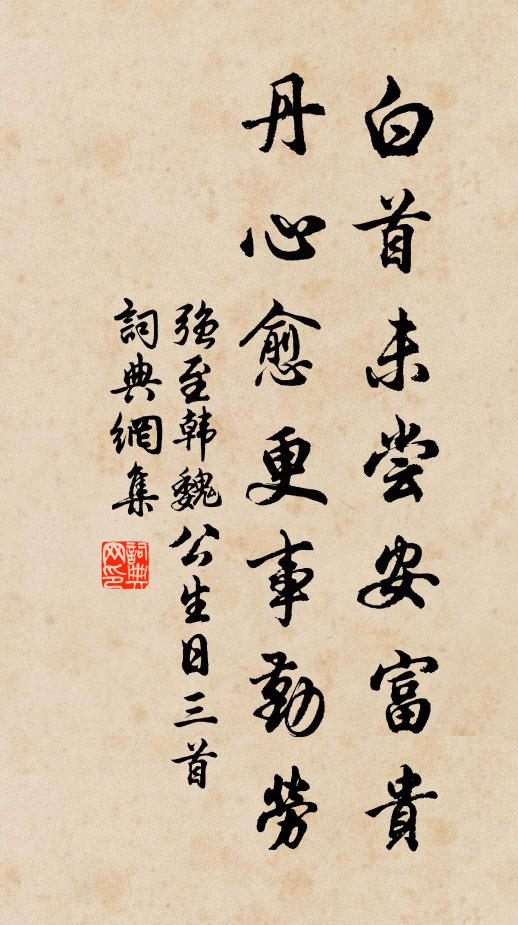 白首未尝安富貴
丹心愈更事勤勞
強至韩魏公生日三首
詞典網集
詞典网印